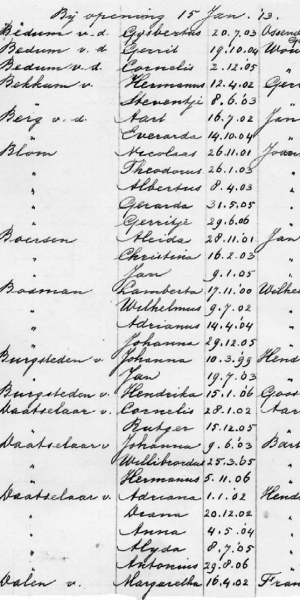 Bij opening 15 Jan. '13.
Bedum v. d. Gijsbertus 20.7.03 Ossend
Bedum v. d. Gerrit 19.10.04 Wou
Bedum v. d. Cornelis 2.12.05
Bekkum v. Hermanus 12.4.02 Gerr
" Steventje 8.6.03
Berg v. d. Aart 16.7.02 Jan
" Everarda 14.10.04
Blom Nicolaas 26.11.01 Joan
" Theodorus 26.1.03
" Albertus 8.4.03
" Gerarda 31.5.05
" Gerritje 29.6.06
Boersen Aleida 28.11.01 Jan
" Christina 16.2.03
" Jan 9.1.05
Bosman Lamberta 17.11.00 Wilhel
" Wilhelmus 9.7.02
" Adrianus 14.4.04
" Johanna 29.12.05
Burgsteden v Johanna 10.3.99 Hend
" Jan 19.7.03
Burgsteden v. Hendrika 15.1.06 Goos
Daatselaar v. Cornelis 28.1.02 Aar
" Rutger 15.12.05
Daatselaar v Johanna 9.6.03 Bart
" Willibrordus 25.3.05
" Hermanus 5.11.06
Daatselaar v. Adriana 1.1.02 Hend
" Diana 20.12.02
" Anna 4.5.04
" Alyda 8.7.05
" Antonius 29.8.06
Dalen v. Margaretha 16.4.02 Fran